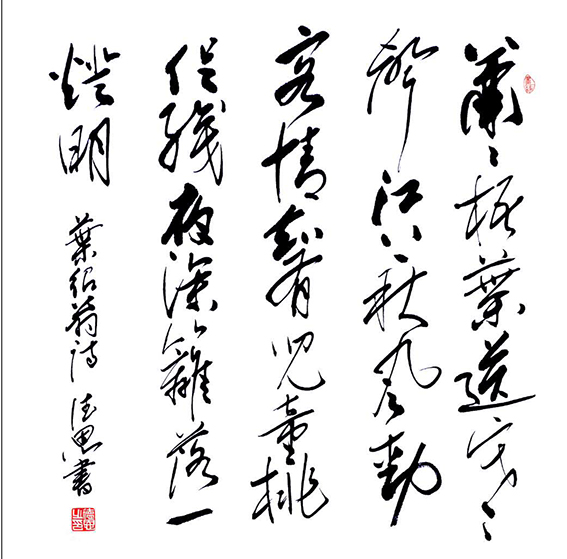 蕭〻梧葉送寒
聲江上秋風動
客情知有兒童挑
促織夜深籬落一
燈明
葉紹翁詩 書